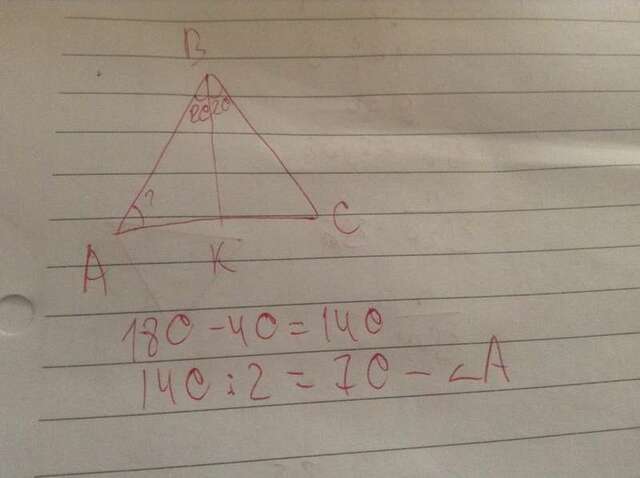 B
20 20
?
A K C
180 - 40 = 140
140 : 2 = 70 - ∠A